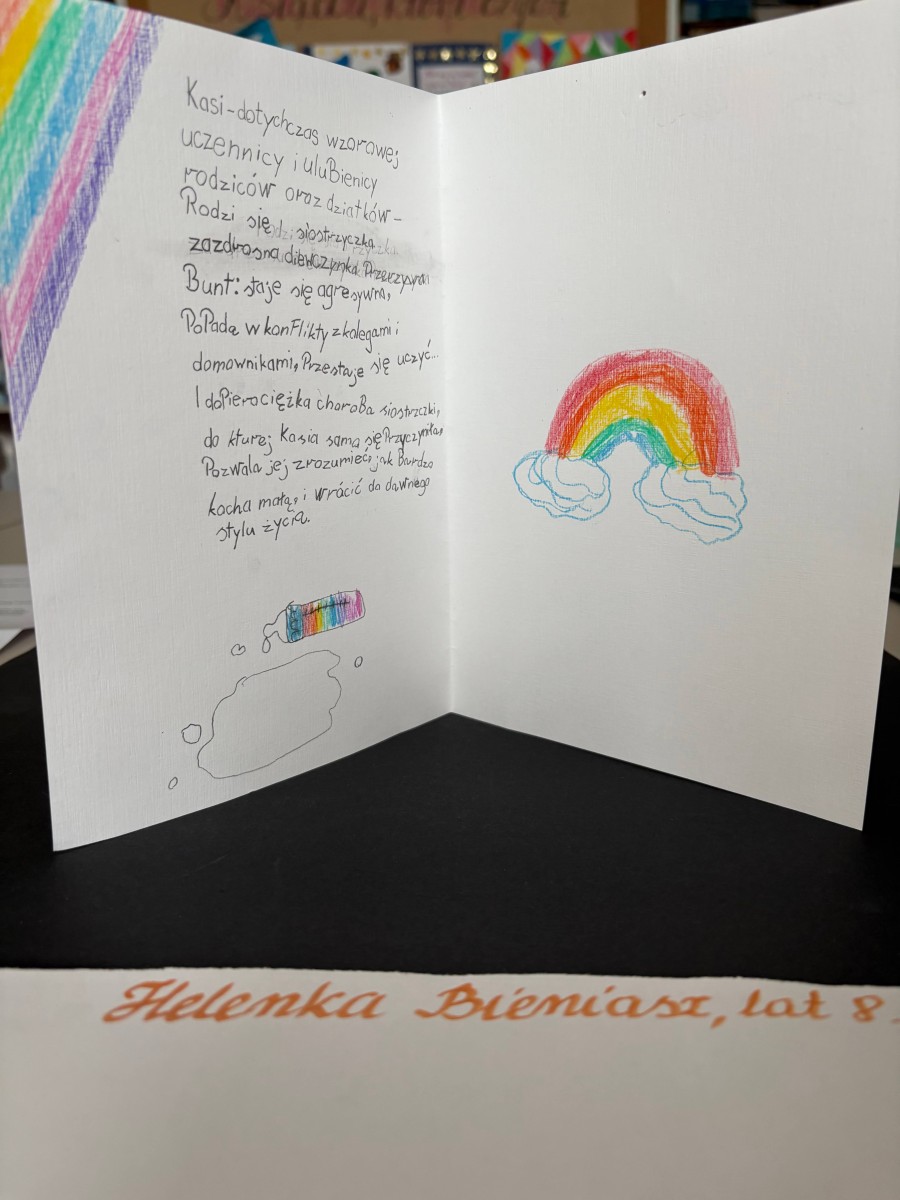 Kasi-dotychczas wzorowej
uczennicy i uluBienicy
rodziców oraz dziatków-
Rodzi się siostrzyczka
zazdrosna diewczynka Przeżywa
Bunt: staje się agresywna,
PoPada w konFlikty z kolegami i
domownikami, Przestaje się uczyć...
I doPiero ciężka choroBa siostrzczki,
do kturej Kasia sama się Przyczyniła,
Pozwala jej zrozumieć, jak Bardzo
kocha małą, i wrócić do dawnego
stylu życia.
Helenka Bieniasz, lat 8.